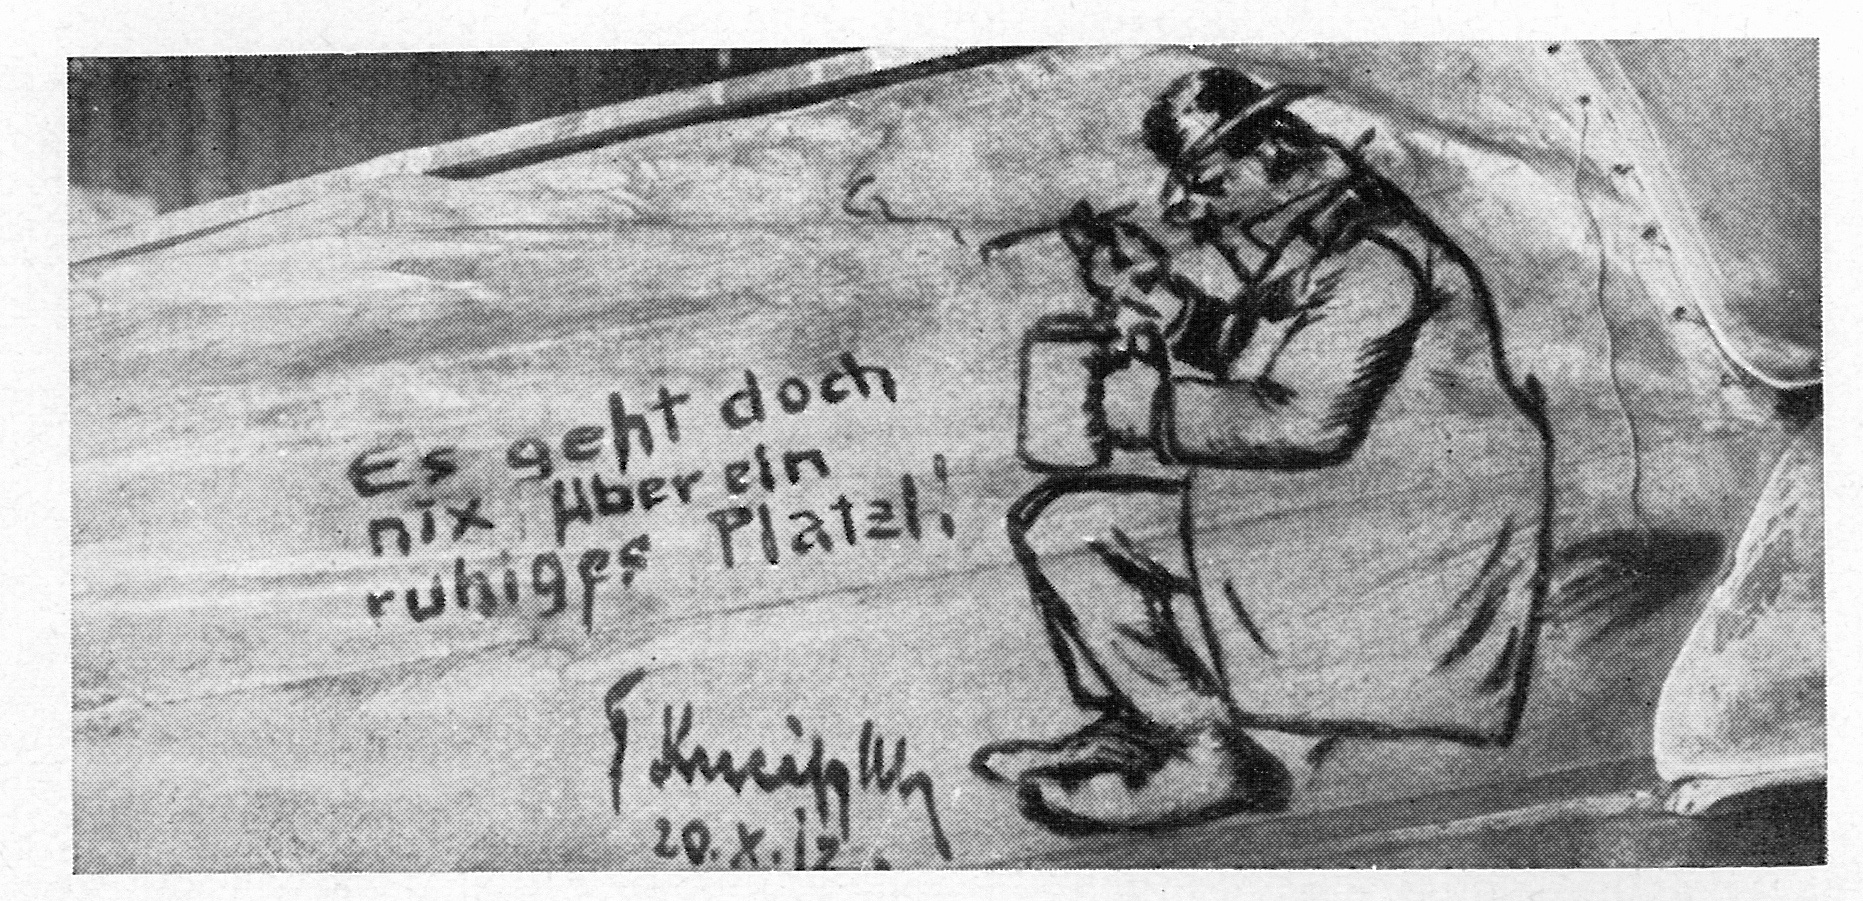 Es geht doch
nix über ein
ruhiges Platzl!
20.X.12.